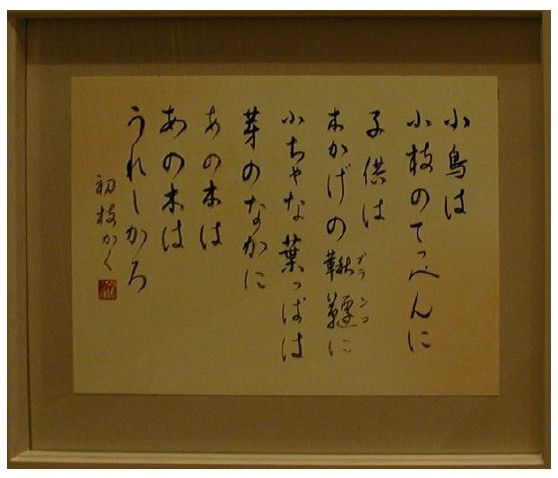 小鳥は
小枝のてっぺんに
子供は
木かげの鞦韆に
ブランコ
小ちゃな葉っぱは
芽のなかに
あの木は
あの木は
うれしかろ
初枝かく